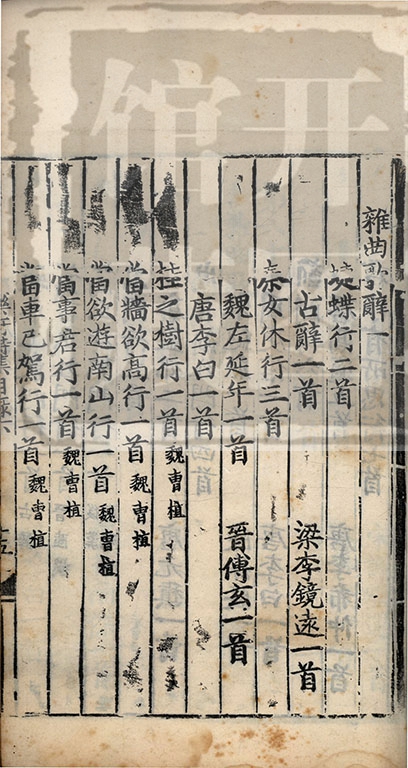 雜曲歌辭一
蝶行二首
古辭一首 梁李鏡遠一首
秦女休行三首
魏左延年一首 晉傅玄一首
唐李白一首
桂之樹行一首 魏曹植
當牆欲高行一首 魏曹植
當欲遊南山行一首 魏曹植
當事君行一首 魏曹植
當車已駕行一首 魏曹植